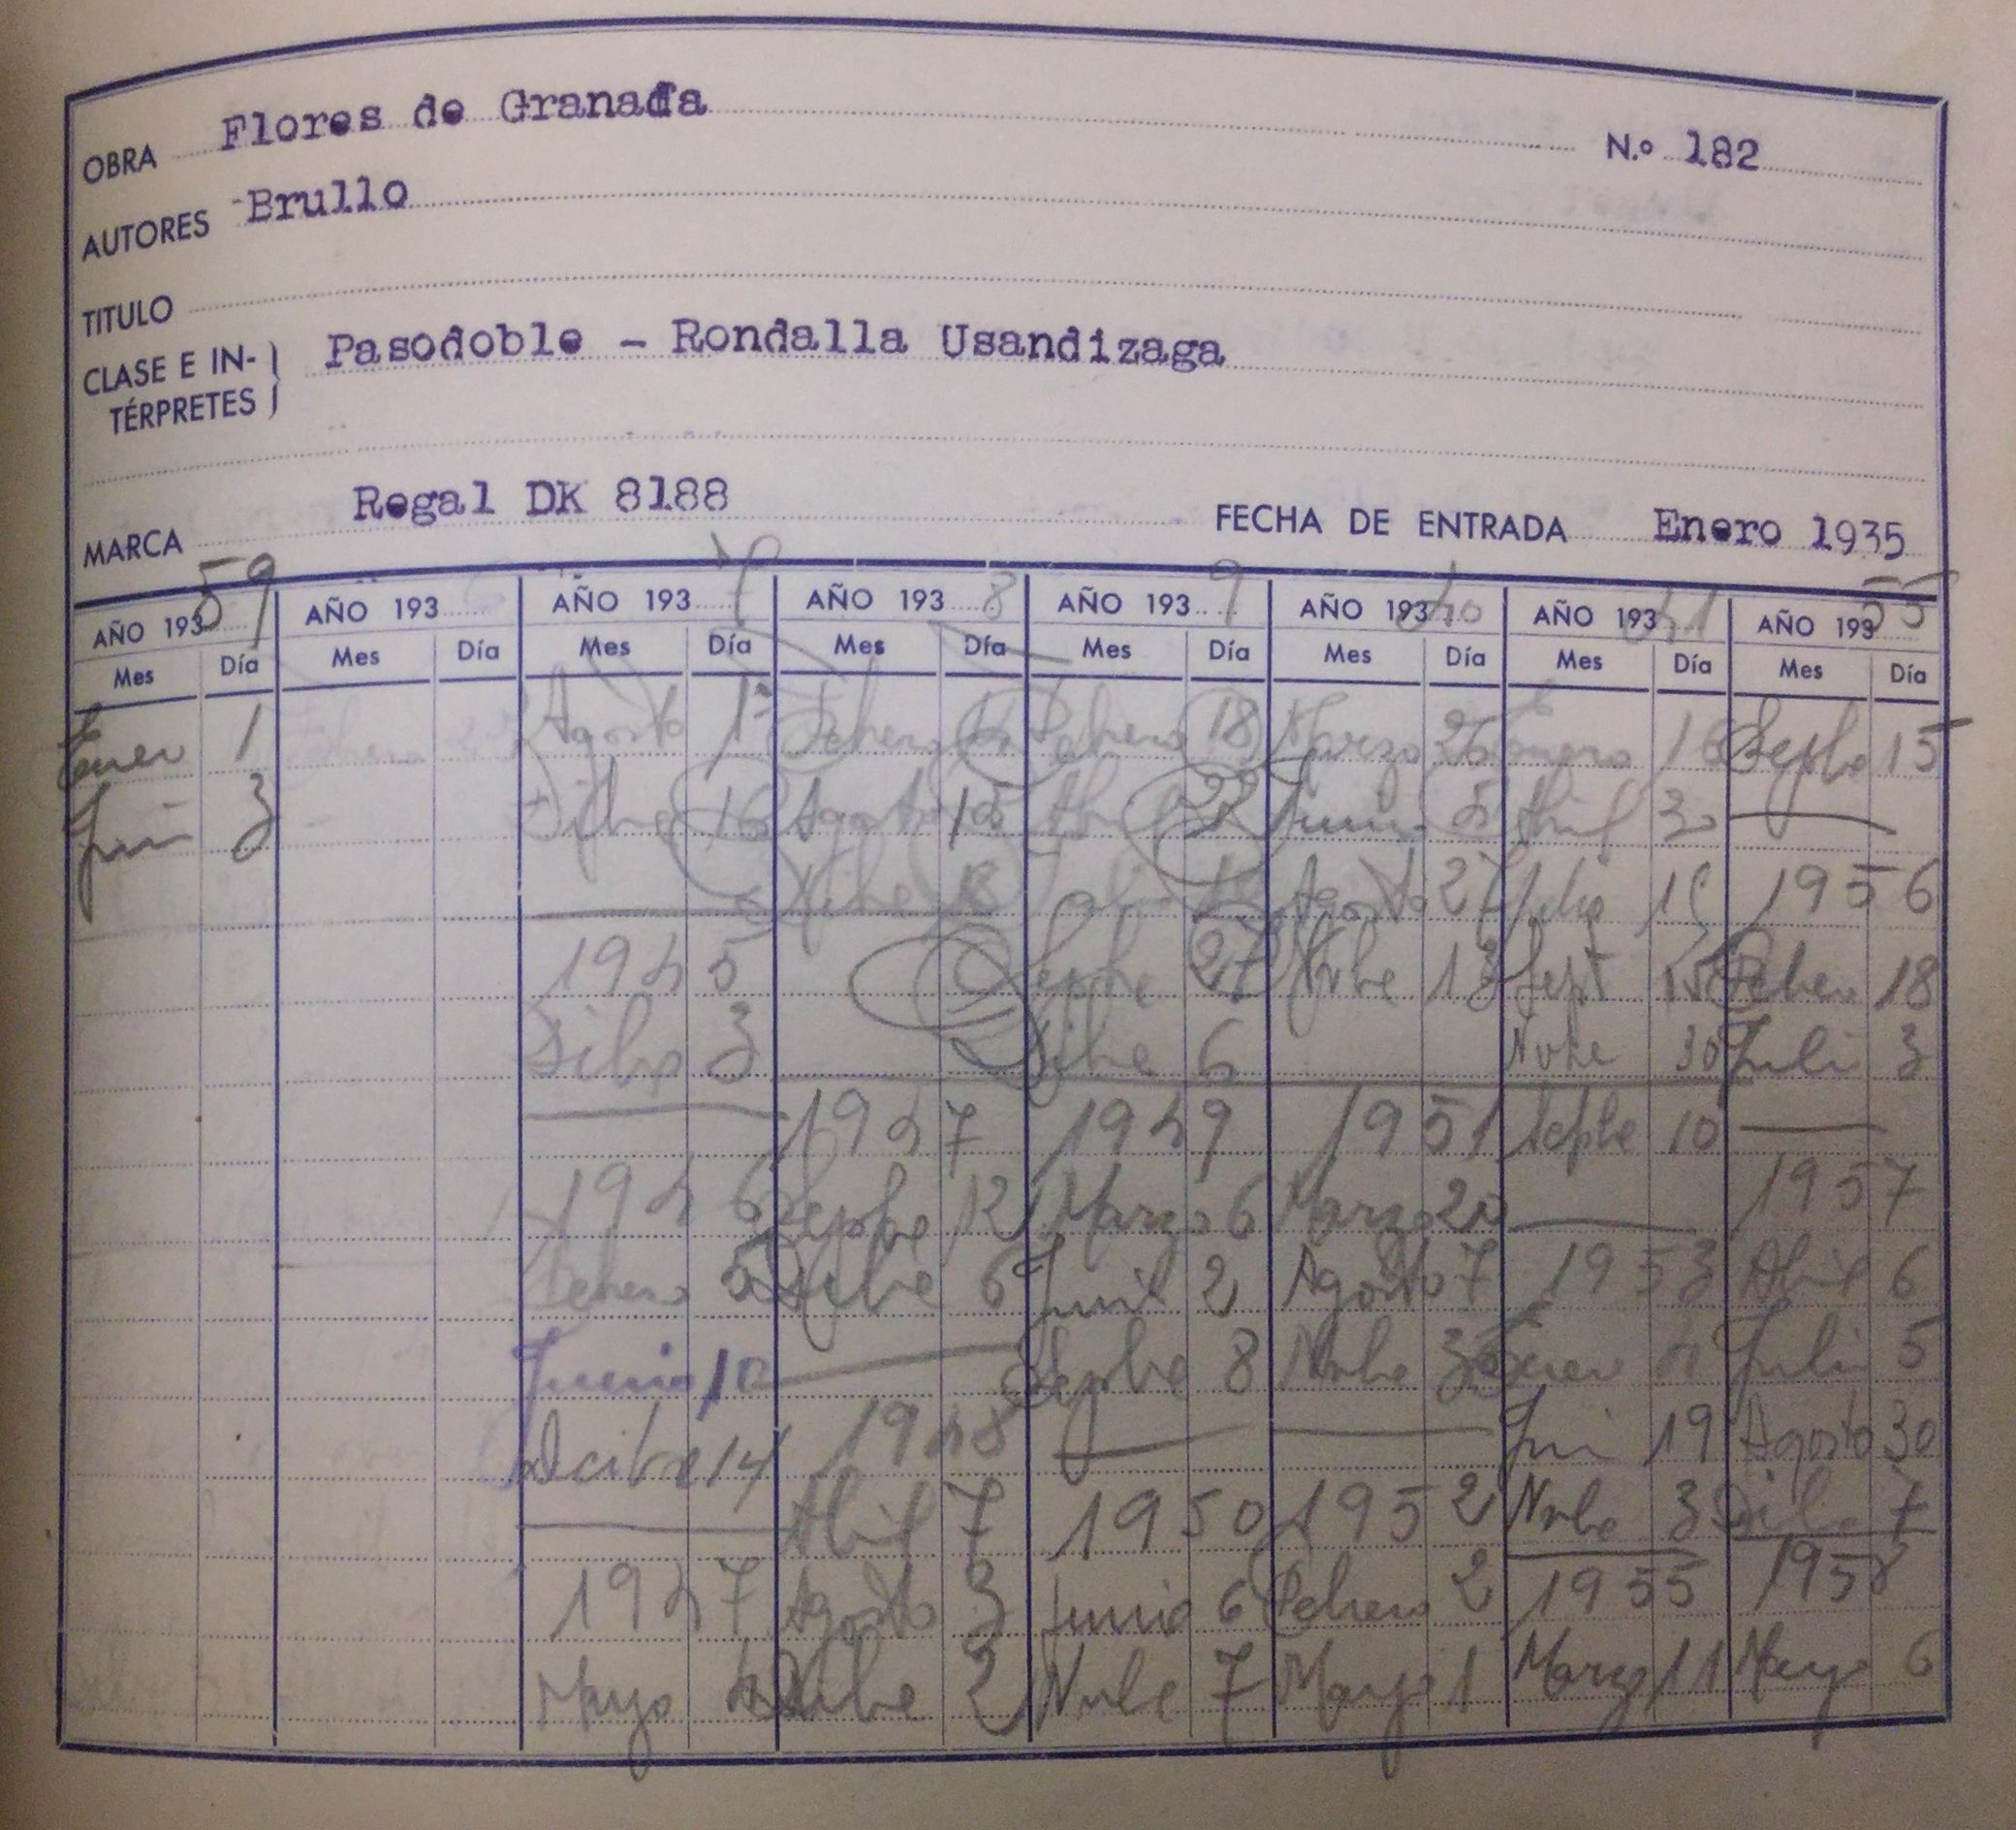 OBRA Flores de Granada N.º 182
AUTORES Brullo
TITULO
CLASE E IN- Pasodoble - Rondalla Usandizaga
TÉRPRETES
MARCA Regal DK 8188 FECHA DE ENTRADA Enero 1935
AÑO 193 59 AÑO 193 AÑO 193 7 AÑO 193 8 AÑO 193 9 AÑO 193 40 AÑO 193 41 AÑO 193 55
Mes Día Mes Día Mes Día Mes Día Mes Día Mes Día Mes Día Mes Día
Enero 1 Agosto 1 Febrero Febrero 18 Marzo 26 Enero 16 Sepbre 15
3 Dibre 16 Agosto 15 22 Junio 5 Abril 30
Agosto 27 Julio 1956
1945 Sepbre 27 Nvbe 13 Sept 15 Febrero 18
Dibre 3 Dibre 6 Nvbe 30 Julio 3
1947 1949 1951 Sepbe 10
1946 Sepbre 12 Marzo 6 Marzo 20 1957
Febrero 5 6 Junio 2 Agosto 7 1953 Abril 6
Junio 12 Sepbre 8 Nvbe 30 Enero 4 Julio 5
Dcibre 14 1948 19 Agosto 30
Abril 7 1950 1952 Nvbe 3 Dibre 7
1947 Agosto 3 Junio 6 Febrero 2 1955 1958
Mayo 2 Nvbe 7 Mayo 1 Marzo 11 Mayo 6